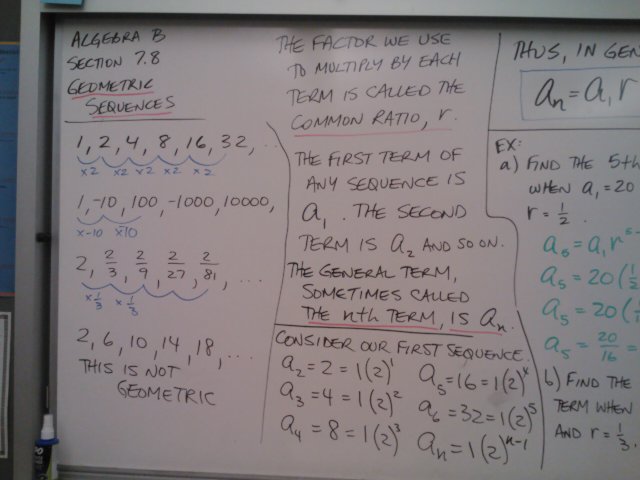 ALGEBRA B
SECTION 7.8
GEOMETRIC
SEQUENCES
1, 2, 4, 8, 16, 32, ...
x2 x2 x2 x2 x2
1, -10, 100, -1000, 10000,
x-10 x-10
2, 2/3, 2/9, 2/27, 2/81, ...
x1/3 x1/3
2, 6, 10, 14, 18, ...
THIS IS NOT
GEOMETRIC
THE FACTOR WE USE
TO MULTIPLY BY EACH
TERM IS CALLED THE
COMMON RATIO, r.
THE FIRST TERM OF
ANY SEQUENCE IS
a₁. THE SECOND
TERM IS a₂ AND SO ON.
THE GENERAL TERM,
SOMETIMES CALLED
THE nth TERM, IS aₙ.
CONSIDER OUR FIRST SEQUENCE.
a₂ = 2 = 1(2)¹
a₃ = 4 = 1(2)²
a₄ = 8 = 1(2)³
a₅ = 16 = 1(2)⁴
a₆ = 32 = 1(2)⁵
aₙ = 1(2)ⁿ⁻¹
THUS, IN GEN
aₙ = a₁ r
EX:
a) FIND THE 5th
WHEN a₁ = 20
r = 1/2.
a₅ = a₁ r⁵⁻
a₅ = 20(1/2
a₅ = 20(
a₅ = 20/16 =
b) FIND THE
TERM WHEN
AND r = 1/3.